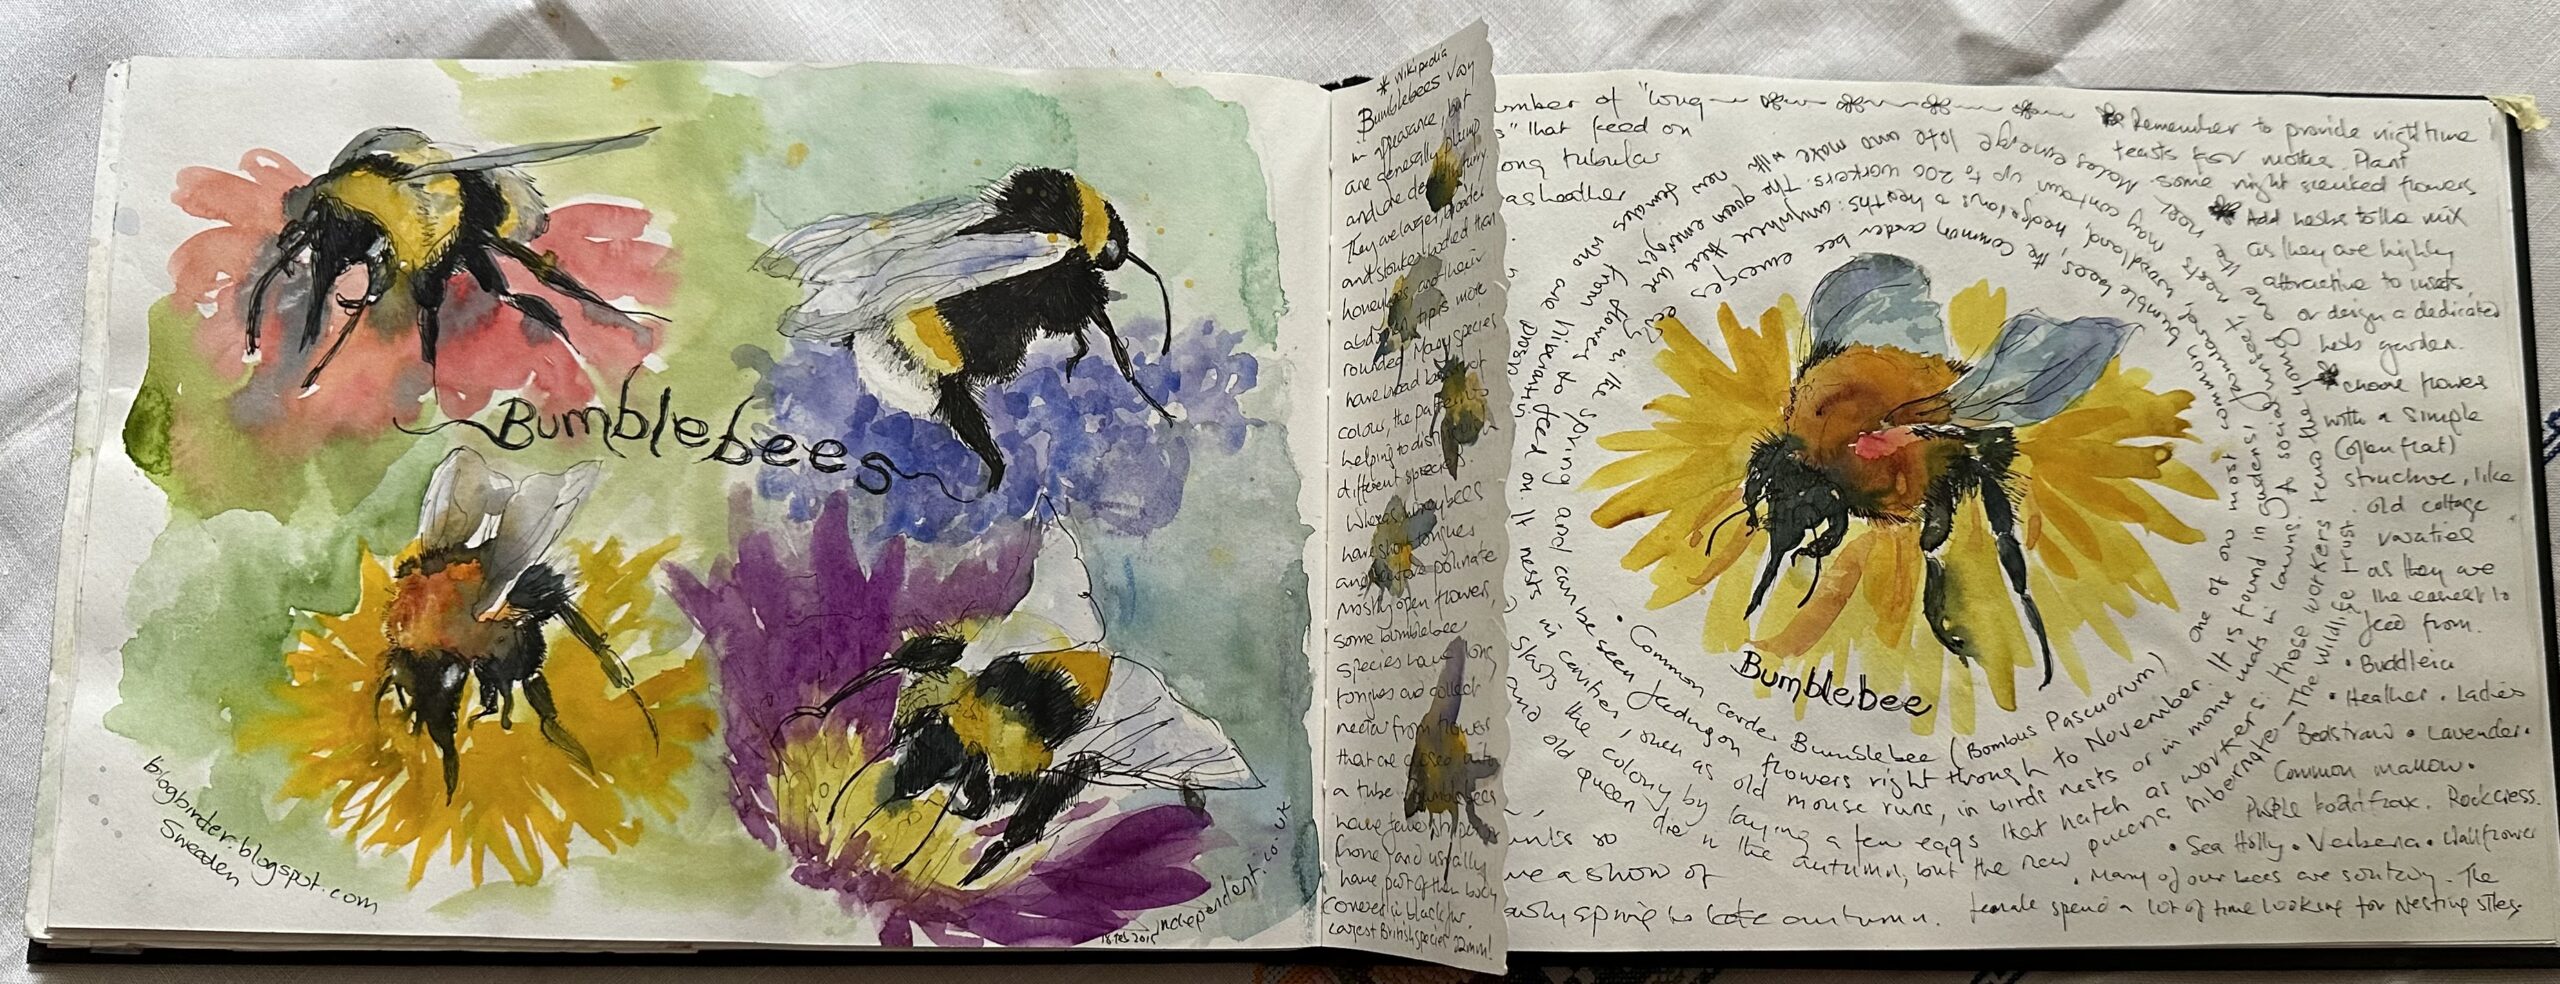 Bumblebees
blogbirder.blogspot.com
Sweeden
18 Feb 2015
independent.co.uk
* Wikipedia
Bumblebees vary
in appearance, but
are generally plump
and are densely furry.
They are larger, broader
and stouter bodied than
honeybees, and their
abdomen tip is more
rounded. Many species
have broad bands of
colour, the patterns
helping to distinguish
different species.
Whereas honeybees
have short tongues
and therefore pollinate
mostly open flowers,
some bumblebee
species have long
tongues and collect
nectar from flowers
that are closed into
a tube. Bumblebees
have fewer stripes
and usually
have part of their body
covered in black fur.
Largest British species 22mm!
umber of "long
s" that feed on
ong tubular
as heather
unts so
ve a show of
spring to late autumn.
Bumblebee
• Common carder Bumblebee (Bombus Pascuorum) one of our most common bumble bees, the common carder bee emerges early in the spring and can be seen feeding on flowers right through to November. It is found in gardens, farmland, woodland, hedgerows & heaths: anywhere there are flowers to feed on. It nests in cavities, such as old mouse runs, in birds nests or in mown mats in lawns. A social
nests may contain up to 200 workers. The queen emerges from hibernation
starts the colony by laying a few eggs that hatch as workers: those workers tend the young
Males emerge late and make with new females who are
and old queen die in the autumn, but the new queens hibernate - The Wildlife Trust
* Remember to provide nighttime
feasts for moths. Plant
some night scented flowers
* Add herbs to the mix
as they are highly
attractive to insects,
or design a dedicated
herb garden.
* choose flowers
with a simple
(open flat)
structure, like
old cottage
varieties
as they are
the easiest to
feed from.
• Buddleia
• Heather • Ladies
Bedstraw • Lavender •
Common mallow •
Purple Rockcress.
• Sea Holly • Verbena • Wallflower
• Many of our bees are solitary. The
female spend a lot of time looking for Nesting sites.